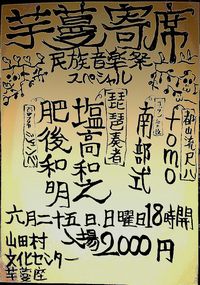 芋蔓寄席
民族音楽祭
スペシャル
都山流尺八
fomo
南部式
琵琶奏者
塩高和之
肥後和明
六月二十五日、日曜日18時開
入場2,000円
山田村
文化センター
芋蔓座